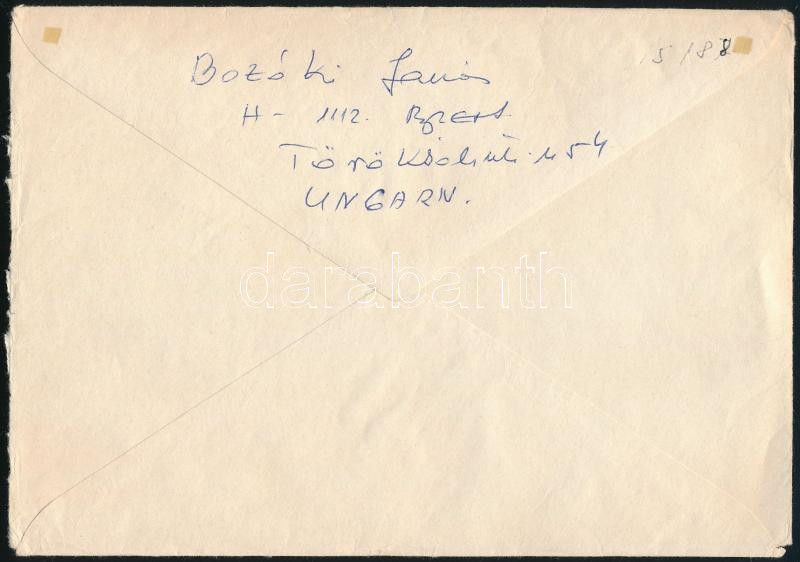 Bozóki János
H - 1112. Bpest
Törökbálinti u 54
UNGARN.
15/88
darabanth